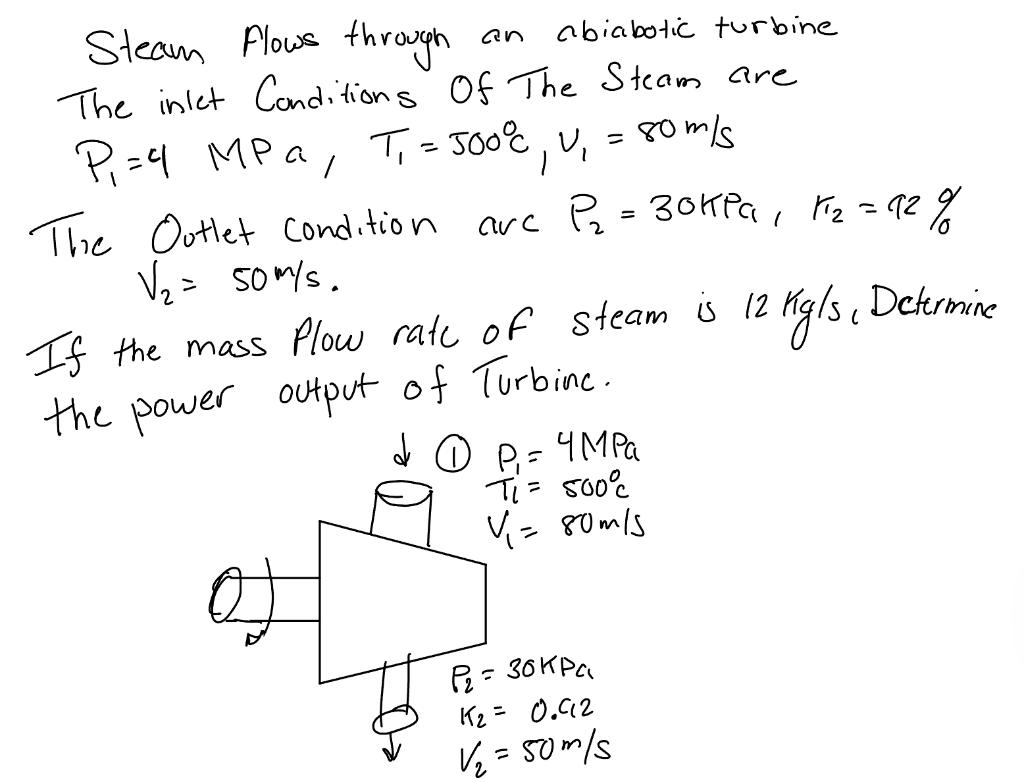 Steam flows through an abiabotic turbine
The inlet Conditions Of The Steam are
P₁=4 MPa, T₁ = 500°c, V₁ = 80 m/s
The Outlet condition are P₂ = 30KPa, K₂ = 92 %
V₂ = 50 m/s.
If the mass flow rate of steam is 12 Kg/s, Determine
the power output of Turbine.
① P₁ = 4MPa
T₁ = 500°c
V₁ = 80 m/s
P₂ = 30KPa
K₂ = 0.92
V₂ = 50 m/s